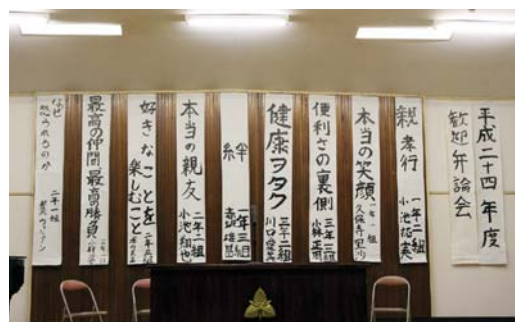 平成二十四年度
歓迎弁論会
親孝行
一年二組
小池拓実
本当の笑顔
一年一組
久保寺里沙
便利さの裏側
三年三組
小林正明
健康ヲタク
三年二組
川口愛美
絆
一年三組
本当の親友
二年一組
小池翔也
好きなことを
楽しむこと
最高の仲間、最高の勝負
なぜ
怒られるのか
二年一組